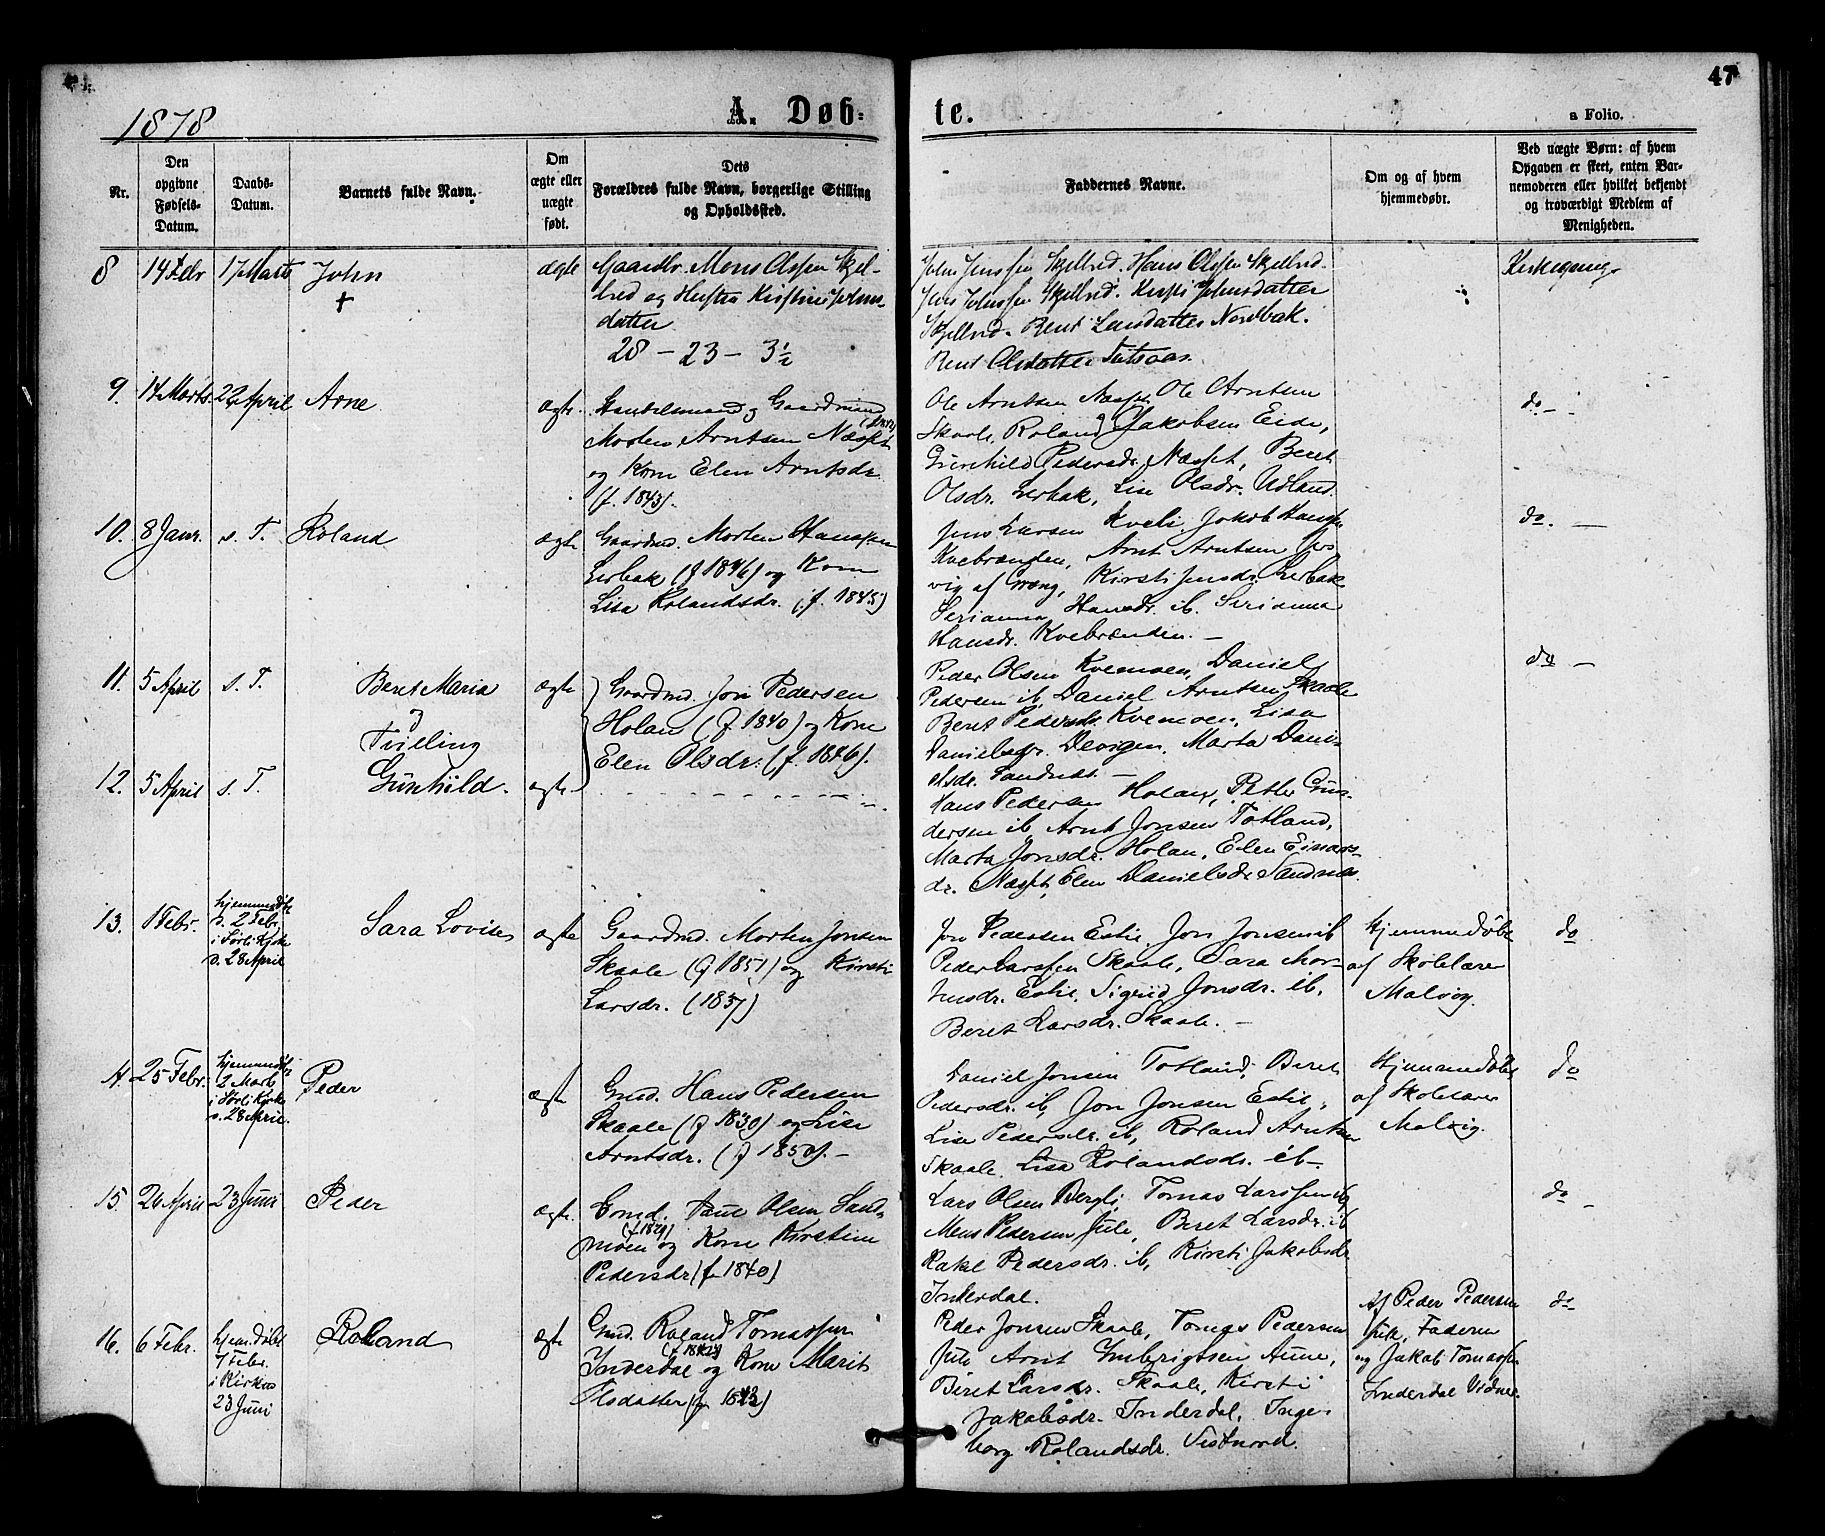 1878
A. Døb-
te.
47
a Folio.
Nr.
Den opgivne Fødsels-Datum.
Daabs-Datum.
Barnets fulde Navn.
Om ægte eller uægte født.
Dets Forældres fulde Navn, borgerlige Stilling og Opholdssted.
Faddernes Navne.
Om og af hvem hjemmedøbt.
Ved uægte Børn: af hvem Opgaven er skeet, enten Barnemoderen eller hvilket bekjendt og troværdigt Medlem af Menigheden.
8 14 Febr 17 Marts John + ægte
Gaardbr. Mons Olssen Skjel-
bred og Hustru Kristine Johns-
datter
28 - 23 - 3½
John Jenssen Skjelbred. Hans Olssen Skjelbred.
Jens Johnssen Skjelbred. Kirsti Johnsdatter
Skjelbred. Berit Larsdatter Nordbak.
Berit Olsdatter
9. 14 Marts. 22 April Arne ægte.
og Gaardmand
Morten Arntsen Næsset
og Kone Elen Arntsdr.
(f. 1843).
Ole Arntsen Næsset, Ole Arntsen
Skaale, Roland Jakobsen Eide,
Gunhild Pedersdr. Næsset, Beret
Olsdr. Lerbak, Lise Olsdr. Udland.
do -
10. 8 Janr. s. T. Roland ægte
Gaardmd. Morten Hanssen
Lerbak (f 1846) og Kone
Lisa Rolandsdr. (f. 1845)
Jens Larsen Kveli, Jakob Hanssen
Kvebrænden, Arnt Arntsen Jøs-
vig af Grong, Kirsti Jensdr. Lerbak
Serianna Hansdr. ib. Serianna
Hansdr. Kvebrænden. -
do. -
11. 5 April s. T. Beret Maria ægte
og
Tvilling
Gaardmd. Jon Pedersen
Holan (f. 1840) og Kone
Elen Olsdr. (f. 1846).
Peder Olsen Kvemoen, Daniel
Pedersen ib, Daniel Arntsen Skaale
Beret Pedersdr. Kvemoen, Lisa
Danielsdr. Devigen, Marta Dani-
elsdr. Sandnes. -
do -
12. 5 April s. T. Gunhild. ægte
Hans Pedersen Holan, Petter Gun-
dersen ib, Arnt Jonsen Totland,
Marta Jonsdr. Holan, Elen Einars-
dr. Næsset, Elen Danielsdr. Sandnes.
13. 1 Febr. hjemmedøbt
d. 2 Febr,
i Sørli Kirke
d. 28 April
Sara Lovise ægte
Gaardmd. Morten Jonsen
Skaale (f 1851) og Kirsti
Larsdr. (1837)
Jon Pedersen Estil, Jon Jonsen ib
Peder Larssen Skaale, Sara Mor-
tensdr. Estil, Sigrid Jonsdr. ib,
Beret Larsdr. Skaale. -
Hjemmedøbt
af Skolelærer
Malvig.
do
14. 25 Febr. hjemmedøbt
2 Marts
i Sørli Kirke
d. 28 April.
Peder ægte
Gmd. Hans Pedersen
Skaale (f 1830) og Lise
Arntsdr. (f 1850). -
Daniel Jonsen Totland, Beret
Pedersdr. ib, Jon Jonsen Estil,
Lise Pedersdr. ib, Roland Arntsen
Skaale, Lisa Rolandsdr. ib -
Hjemmedøbt
af Skolelærer
Malvig.
do
15. 26 April 23 Juni Peder ægte.
Gmd. Olsen Sand-
(f. 1829)
moen og Kone Kirstine
Pedersdr (f. 1840)
Lars Olsen Bergli, Tomas Larssen ib,
Mens Pedersen Jule, Beret Larsdr. ib
Rakel Pedersdr. ib, Kirsti Jakobsdr.
Inderdal.
do -
16. 6 Febr. hjemdøbt
7 Febr.
i Kirken
23 Juni
Roland ægte
Gmd. Roland Tomassen
Inderdal og Kone Marit
Olsdatter (f. 1843)
Peder Jonsen Skaale, Tomas Pedersen
Jule, Arnt Ingbrigtsen Aune,
Beret Larsdr. Skaale, Kirsti
Jakobsdr. Inderdal, Inge-
borg Rolandsdr. Vestnord.
Af Peder Pedersen
Jule, Faderen
og Jakob Tomassen
Inderdal Vidner.
do